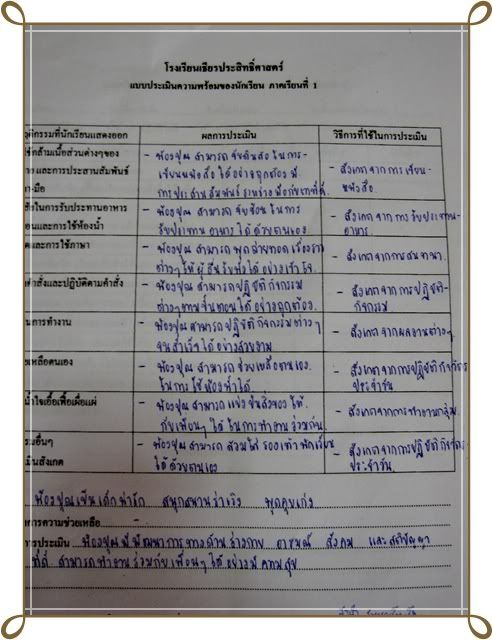 โรงเรียนเธียรประสิทธิ์ศาสตร์
แบบประเมินความพร้อมของนักเรียน ภาคเรียนที่ 1
ติกรรมที่นักเรียนแสดงออก ผลการประเมิน วิธีการที่ใช้ในการประเมิน
ช้กล้ามเนื้อส่วนต่างๆของ - น้องปุณ สามารถ จับดินสอ ในการ - สังเกต จาก การ เขียน-
และการประสานสัมพันธ์ เขียนหนังสือ ได้ อย่างถูกต้อง มี หนังสือ
า-มือ การ ประสาน สัมพันธ์ ระหว่าง มือกับตาที่ดี
ในการรับประทานอาหาร - น้องปุณ สามารถ จับช้อน ในการ - สังเกต จาก การ รับประทาน-
และการใช้ห้องน้ำ รับประทาน อาหาร ได้ ด้วยตนเอง อาหาร
และการใช้ภาษา - น้องปุณ สามารถ พูด ถ่ายทอด เรื่องราว - สังเกต จากการสนทนา.
ต่างๆ ให้ ผู้ อื่น รับฟังได้ อย่างเข้าใจ
คำสั่งและปฏิบัติตามคำสั่ง - น้องปุณ สามารถ ปฏิบัติ กิจกรรม - สังเกต จาก การปฏิบัติ-
ต่างๆ ตามขั้นตอน ได้ อย่างถูกต้อง. กิจกรรม
นการทำงาน - น้องปุณ สามารถ ปฏิบัติ กิจกรรมต่างๆ - สังเกต จาก ผลงานต่างๆ
จนสำเร็จ ได้ อย่างสวยงาม
ยเหลือตนเอง - น้องปุณ สามารถ ช่วยเหลือตนเอง - สังเกต จาก การปฏิบัติ กิจวัตร
ในการ ใช้ ห้องน้ำได้. ประจำวัน
น้ำใจเอื้อเฟื้อเผื่อแผ่ - น้องปุณ สามารถ แบ่ง ปันสิ่งของ ให้ - สังเกต จาก การทำงานกลุ่ม.
กับเพื่อนๆ ได้ ในการทำงาน ร่วมกัน
รมอื่นๆ - น้องปุณ สามารถ สวมใส่ รองเท้า นักเรียน - สังเกต จาก การ ปฏิบัติ กิจวัตร
ป็นสังเกต ได้ ด้วยตนเอง ประจำวัน.
น้องปุณเป็นเด็กน่ารัก สนุกสนานร่าเริง พูดคุยเก่ง
การความช่วยเหลือ -
การประเมิน น้องปุณ มี พัฒนาการทางด้านร่างกาย อารมณ์ สังคม และสติปัญญา
ที่ดี สามารถทำงานร่วมกับเพื่อนๆ ได้ อย่างมี ความสุข